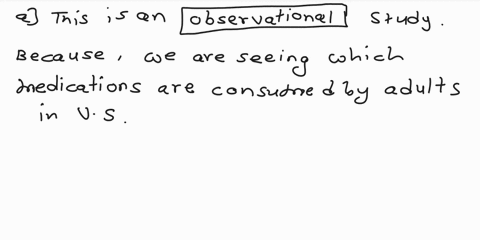 a] This is an observational study.
Because, we are seeing which
medications are consumed by adults
in U.S.